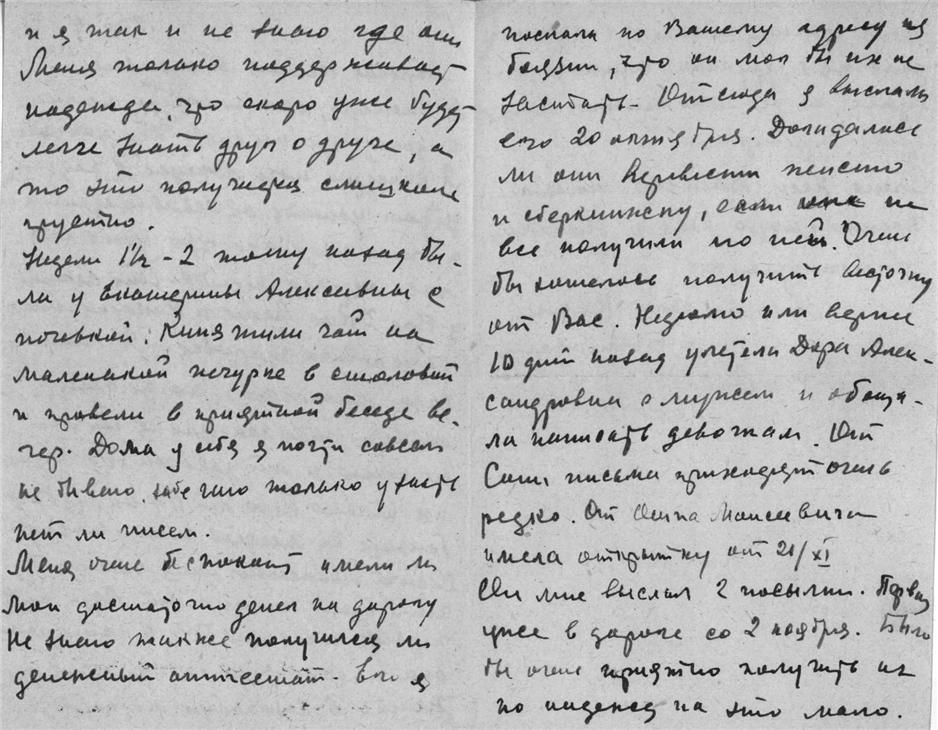 и я так и не знаю где они
Меня только поддерживает
надежда, что скоро уже будет
легче знать друг о друге, а
то это получается слишком
грустно.
Недели 1½ - 2 тому назад бы-
ла у Екатерины Алексеевны с
ночевкой. Кипятили чай на
маленькой печурке в столовой
и провели в приятной беседе ве-
чер. Дома у себя я почти совсем
не бываю, забегаю только узнать
нет ли писем.
Меня очень беспокоит имели ли
мои достаточно денег на дорогу
Не знаю также получился ли
денежный аттестат. Его я
послала по Вашему адресу из
боязни, что он мог бы их не
застать. Отсюда я выслала
его 20 октября. Догадались
ли они перевести пенсию
и сберкнижку, если не
все получили по ней. Очень
бы хотелось получить весточку
от Вас. Неделю или вернее
10 дней назад улетели Дора Алек-
сандровна с мужем и обеща-
ла написать девочкам. От
Саши письма приходят очень
редко. От Осипа Моисеевича
имела открытку от 21/XI
Он мне выслал 2 посылки. Первая
уже в дороге со 2 ноября. Было
бы очень приятно получить их
но надежд на это мало.